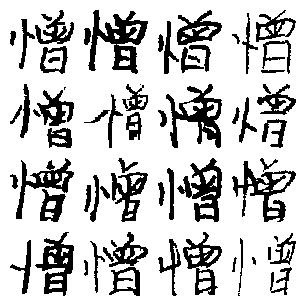 憎憎憎憎
憎憎憎憎
憎憎憎憎
憎憎憎憎